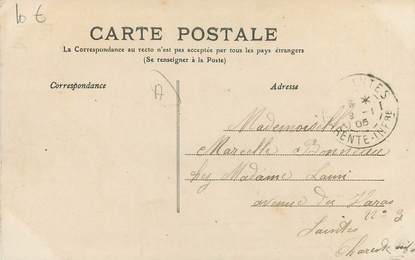 10 €
CARTE POSTALE
La Correspondance au recto n'est pas acceptée par tous les pays étrangers
(Se renseigner à la Poste)
Correspondance
Adresse
A
Mademoiselle
Marcelle
chez Madame
avenue du Haras
N° 3
Saintes